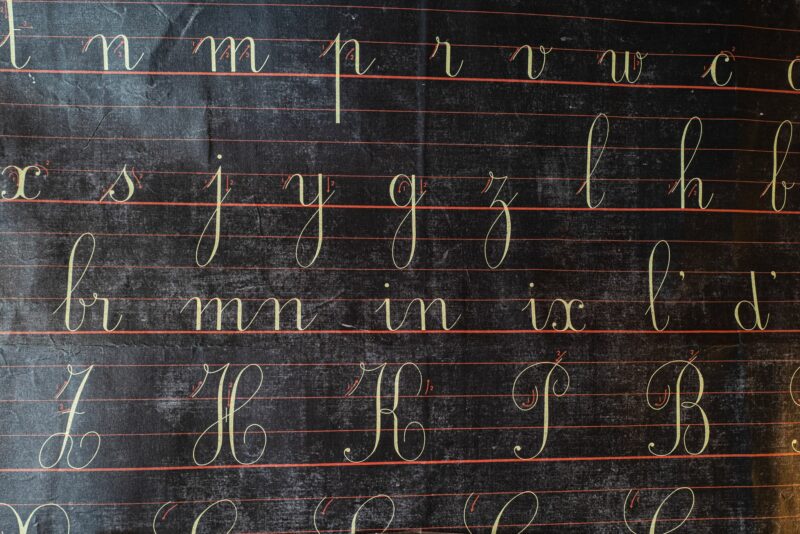 t n m p r v w c
x s j y g z l h b
br mn in ix l' d'
H K P B